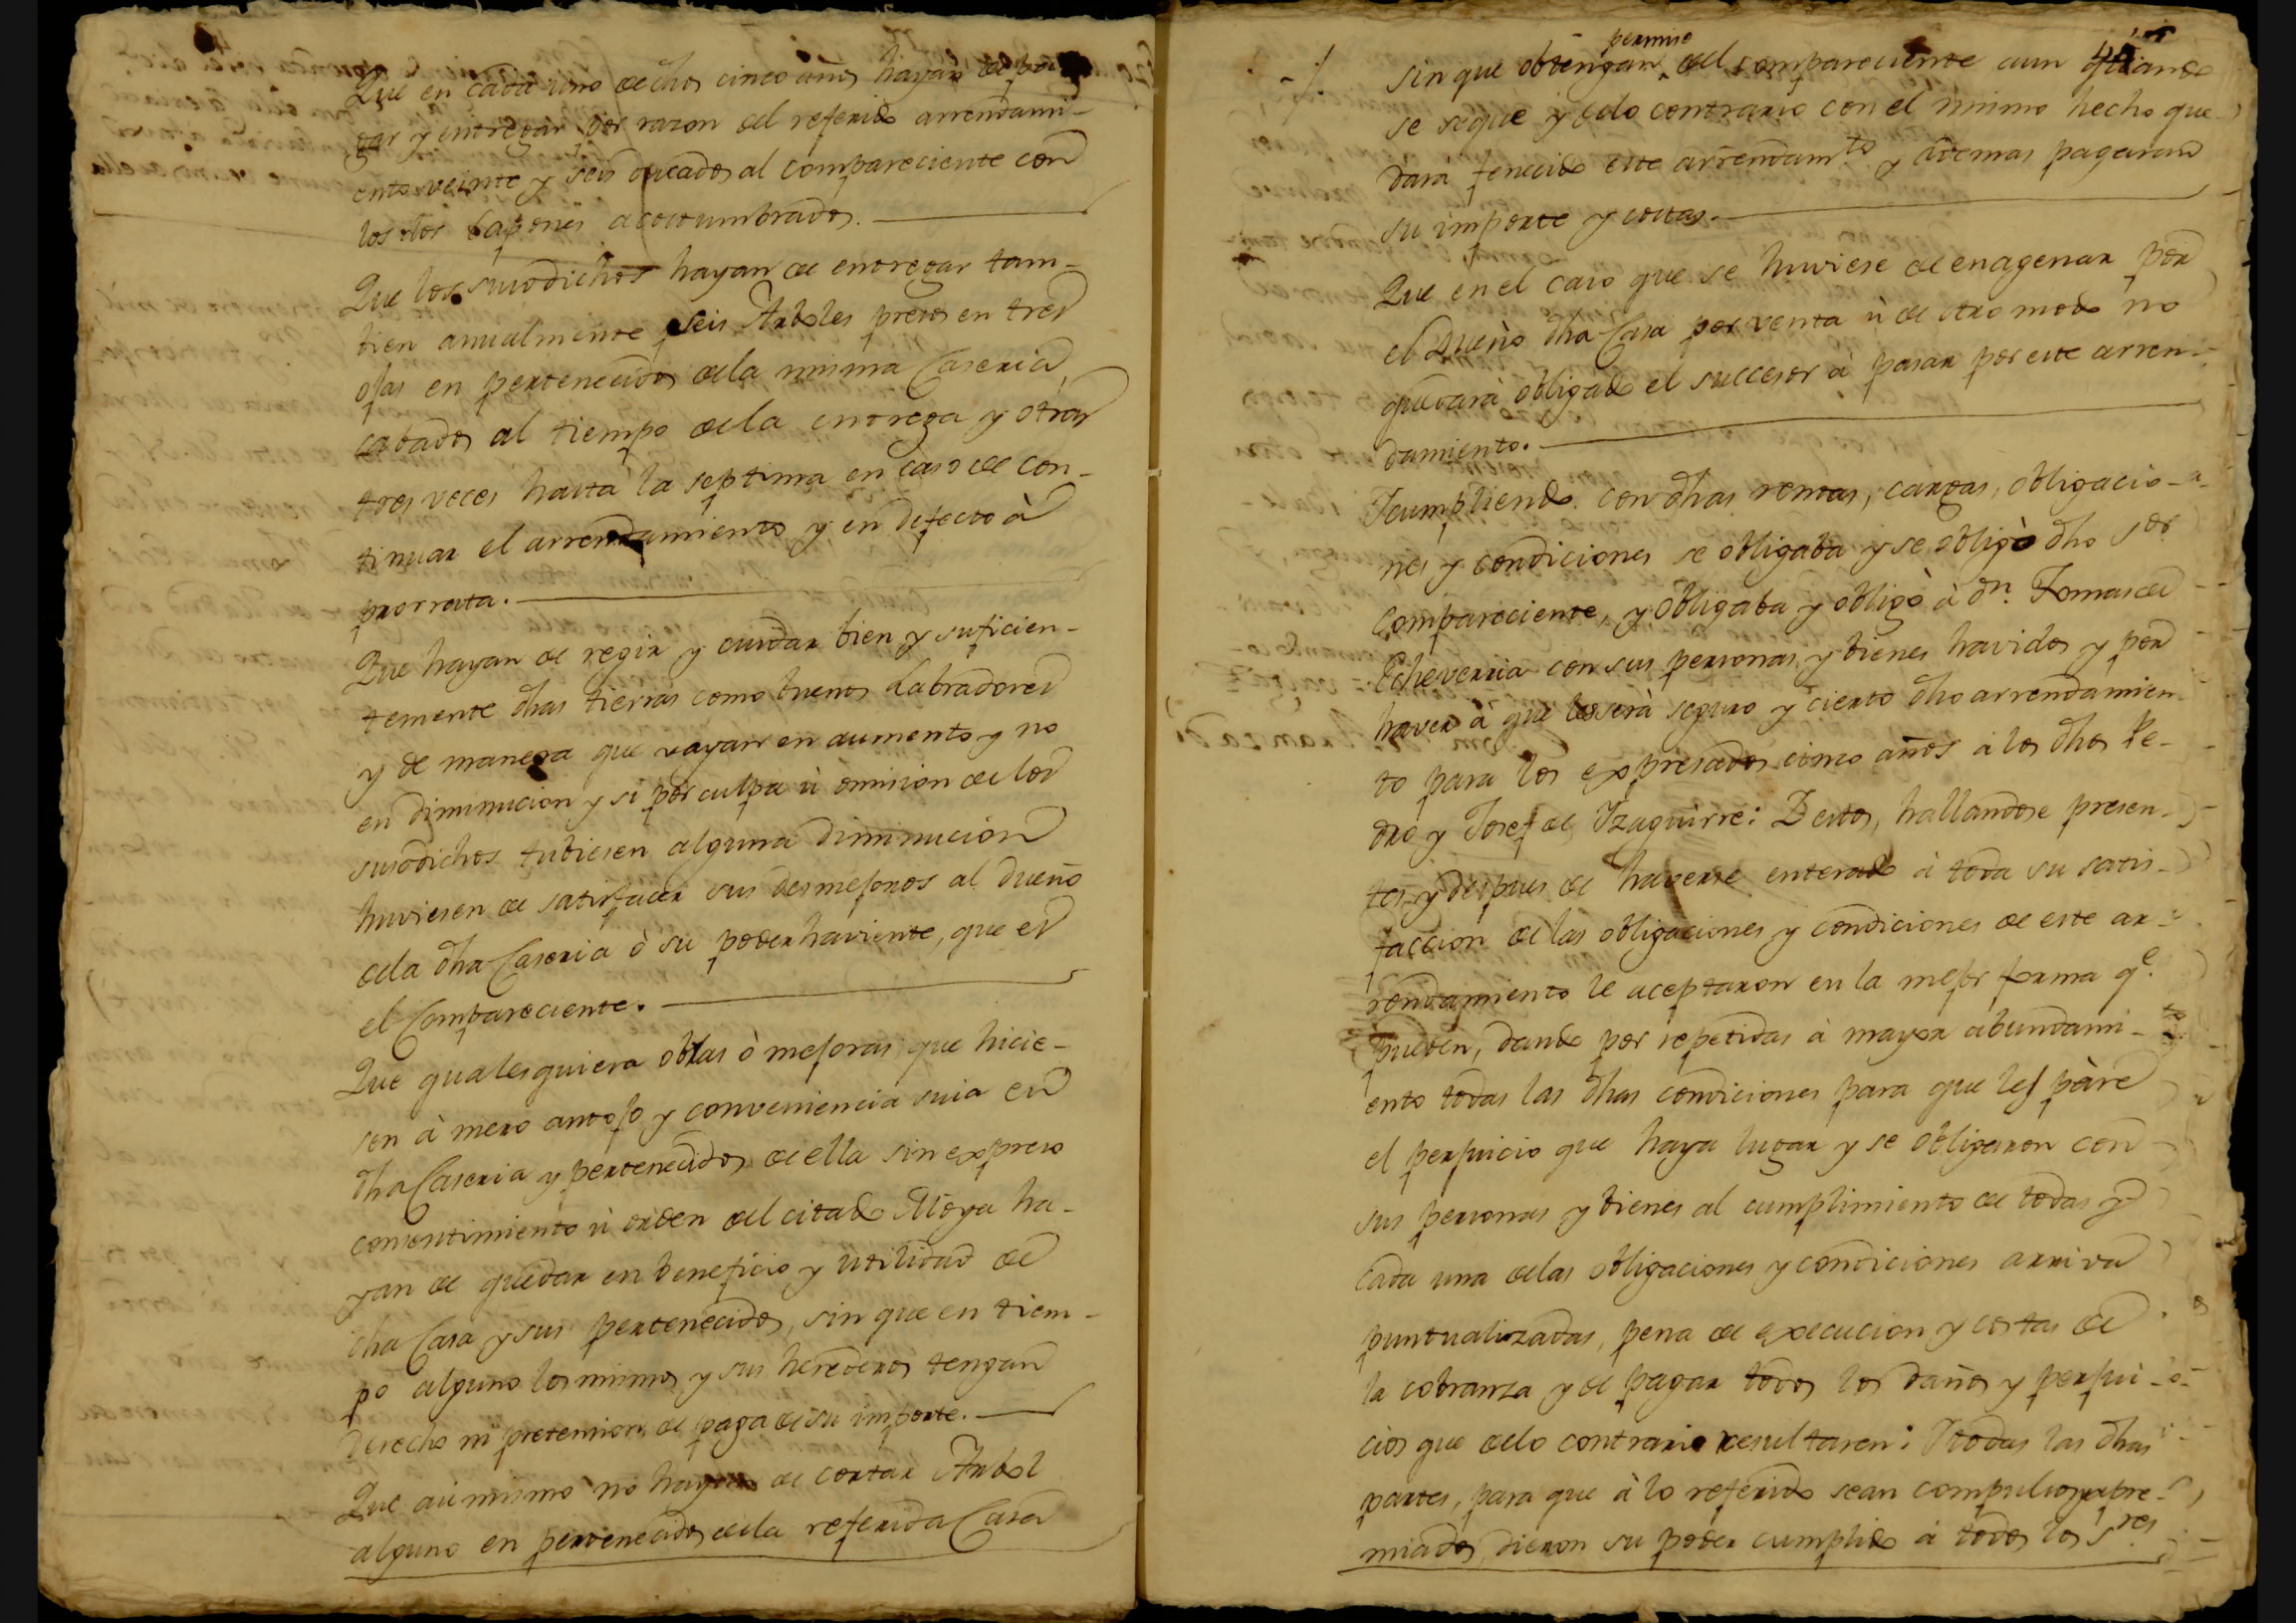 Que en cada uno de dhos cinco años hayan de pa-
gar y entregar por razon del referido arrendami-
ento veinte y seis ducados al compareciente con
los dos Capones acostumbrados.
Que los susodichos hayan de entregar tam-
bien anualmente seis Arboles presos en tres
ojas en pertenecidos de la misma Caseria,
cabados al tiempo de la entrega y otras
tres veces hasta la septima en caso de con-
tinuar el arrendamiento y en defecto à
prorrata.
Que hayan de regir y cuidar bien y suficien-
temente dhas tierras como buenos Labradores
y de manera que vayan en aumento y no
en diminucion y si por culpa ù omision de los
susodichos tubiesen alguna diminucion
huviesen de satisfacer sus desmejoros al dueño
de la dha Caseria ò su poderhaviente, que es
el Compareciente.
Que qualesquiera obras ò mejoras que hicie-
sen à mero antojo y conveniencia suia en
dha Caseria y pertenecidos de ella sin expreso
consentimiento ù orden del citado Moya ha-
yan de quedar en beneficio y utilidad de
dha Casa y sus pertenecidos, sin que en tiem-
po alguno los mismos y sus herederos tengan
derecho ni pretension de paga de su importe.
Que asimismo no hayan de cortar Arbol
alguno en pertenecidos de la referida Casa
sin que obtengan permiso del compareciente aun quando
se seque y de lo contrario con el mismo hecho que-
dará fenecido este arrendamto y àdemas pagaran
su importe y costas.
Que en el caso que se huviese de enagenar por
el Dueño dha Casa por venta ù de otro modo no
quedarà obligado el succesor à pasar por este arren-
damiento.
Y cumpliendo con dhas rentas, cargas, obligacio-
nes y condiciones se obligaba y se obligò dho Sor
Compareciente, y obligaba y obligò à Dn. Tomas de
Echeverria con sus personas y bienes havidos y por
haver à que les serà seguro y cierto dho arrendamien-
to para los expresados cinco años à los dhos Pe-
dro y Josef de Yzaguirre: Y estos, hallandose presen-
tes y despues de haverse enterado à toda su satis-
faccion de las obligaciones y condiciones de este ar-
rendamiento le aceptaron en la mejor forma qe.
pueden, dando por repetidas à mayor abundami-
ento todas las dhas condiciones para que les pàre
el perjuicio que haya lugar y se obligaron con
sus personas y bienes al cumplimiento de todas y
cada una de las obligaciones y condiciones arriva
puntualizadas, pena de execucion y costas de
la cobranza y de pagar todos los daños y perjui-
cios que de lo contrario resultaren: Y todas las dhas
partes, para que à lo referido sean compulsos y apre-
miados, dieron su poder cumplido à todos los Sres